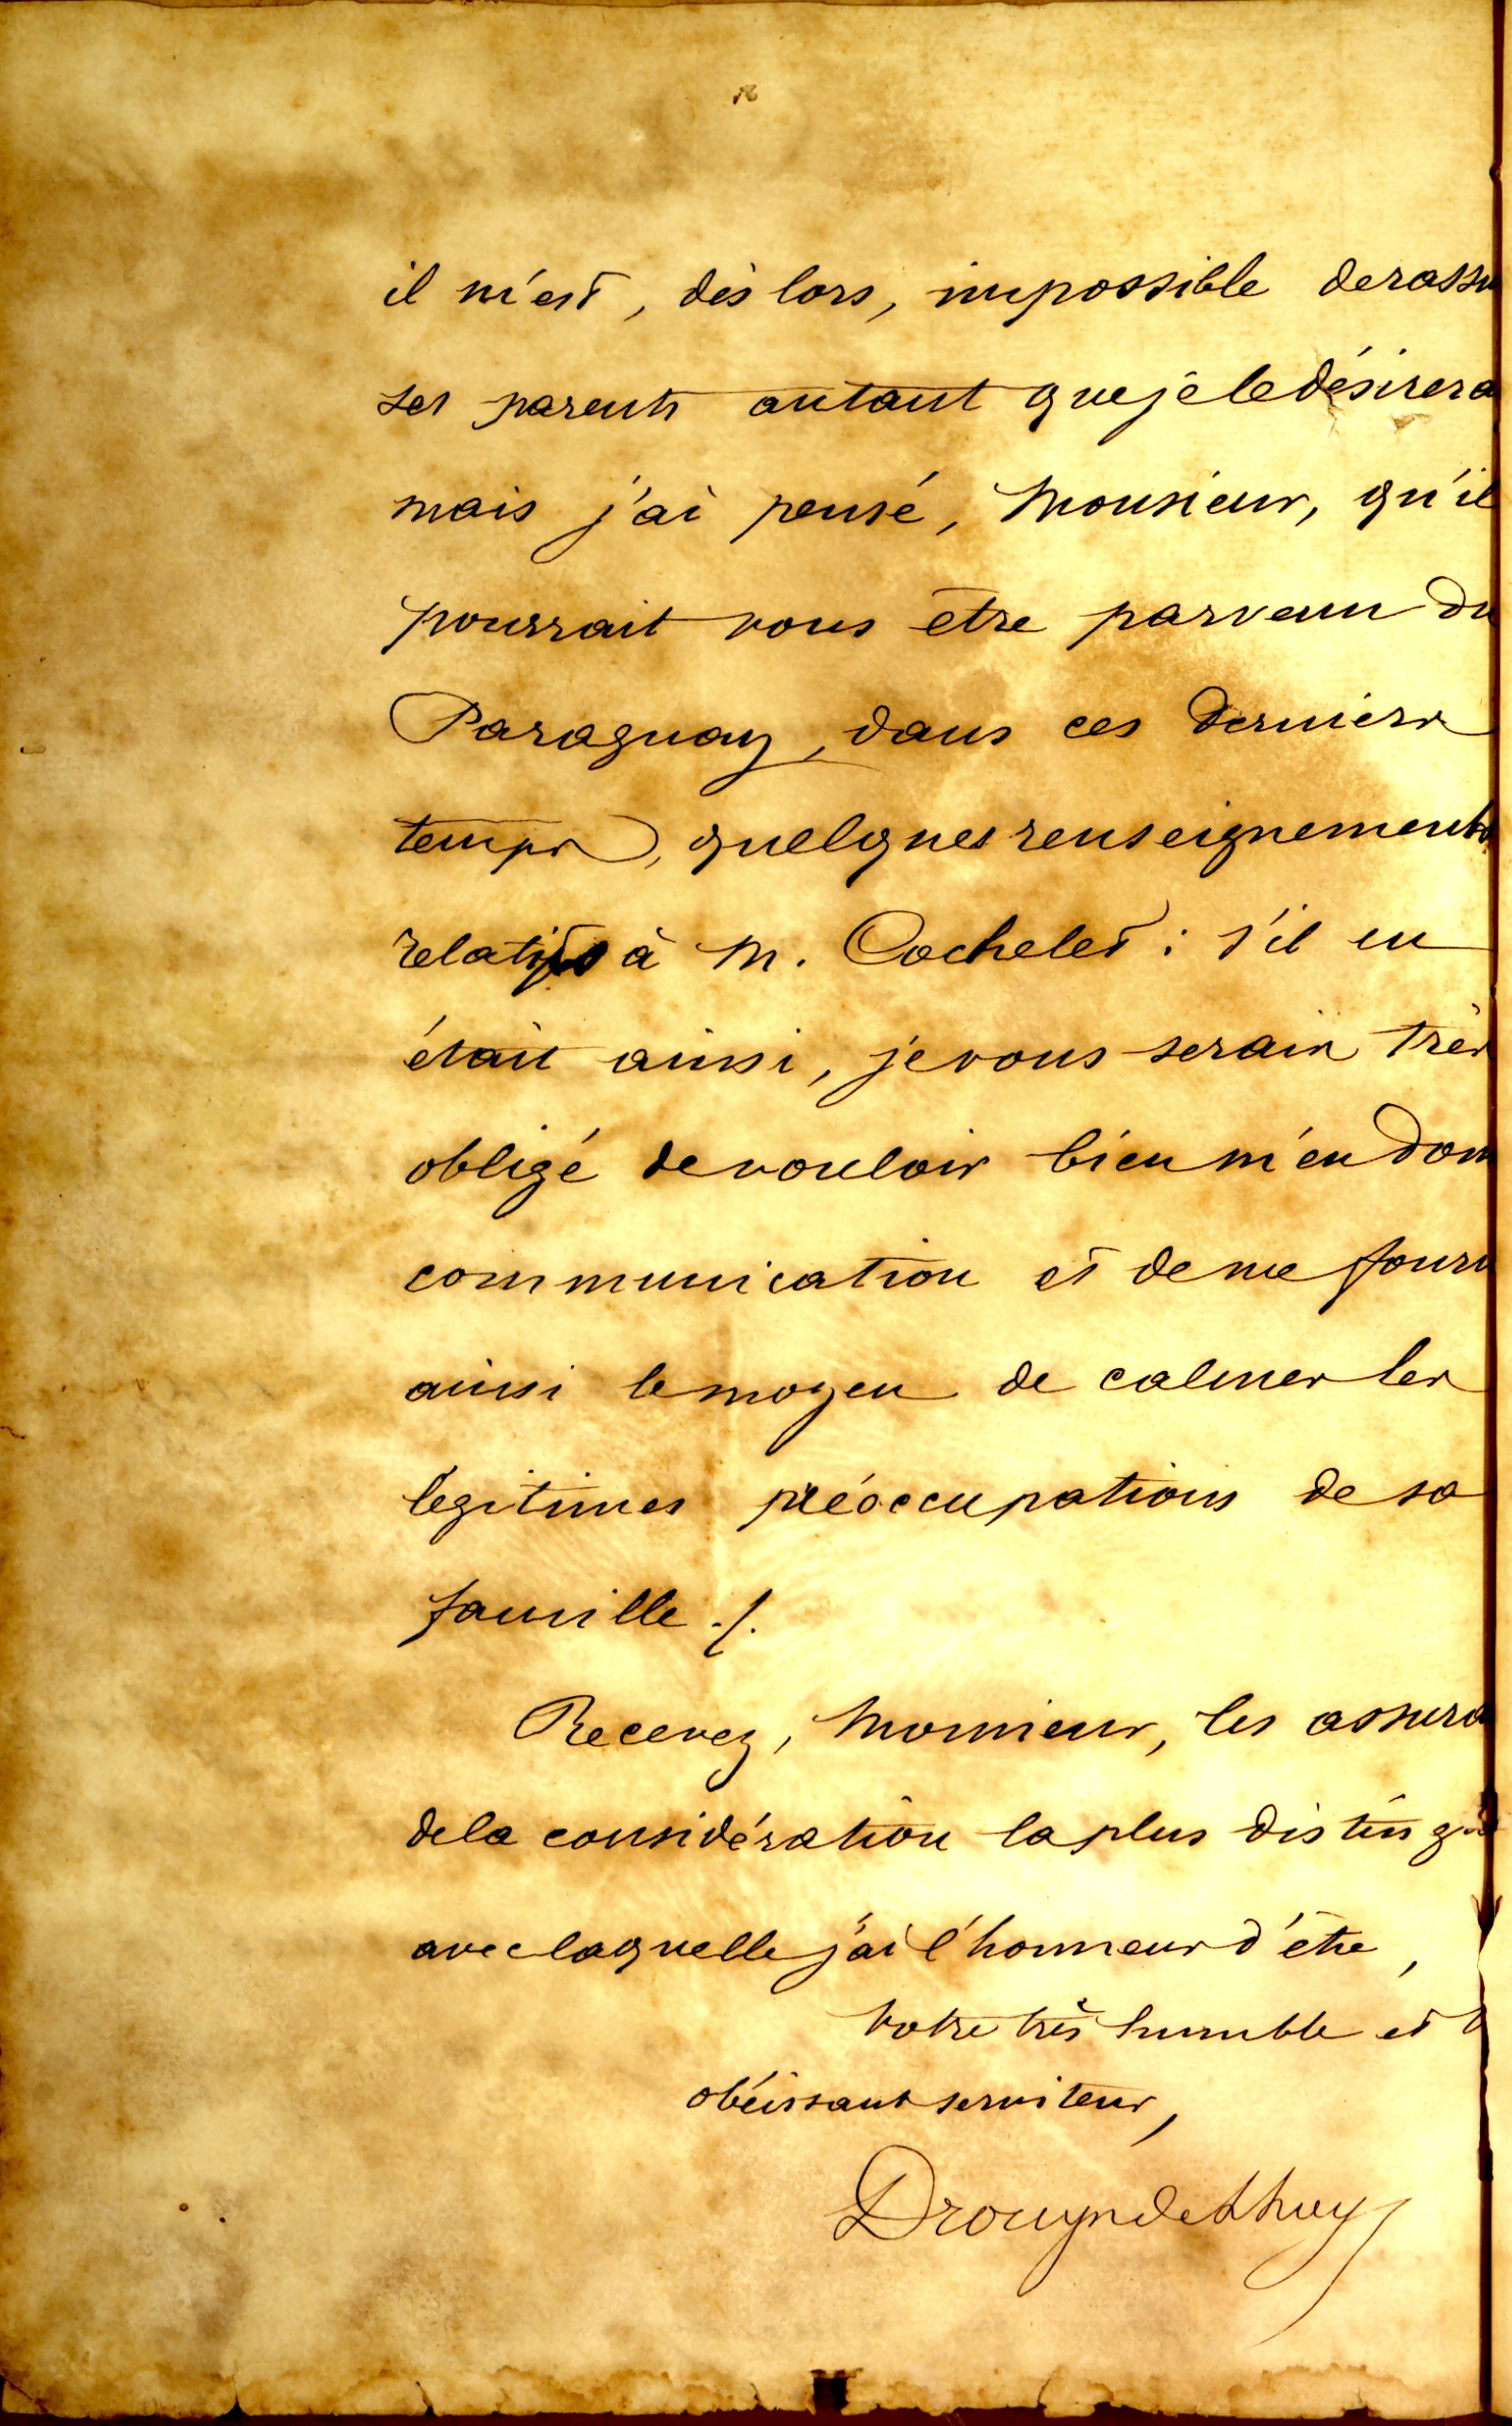 il m'est, dès lors, impossible de rassu
ses parents autant que je le désirera
mais j'ai pensé, Monsieur, qu'il
pourrait vous être parvenu du
Paraguay, dans ces derniers
temps, quelques renseignements
relatifs à M. Cochelet : s'il en
était ainsi, je vous serais très
obligé de vouloir bien m'en donn
communication et de me fourn
ainsi le moyen de calmer les
légitimes préoccupations de sa
famille ./.
Recevez, Monsieur, les assura
de la considération la plus distingu
avec laquelle j'ai l'honneur d'être,
Votre très humble et t
obéissant serviteur,
Drouyn de Lhuys